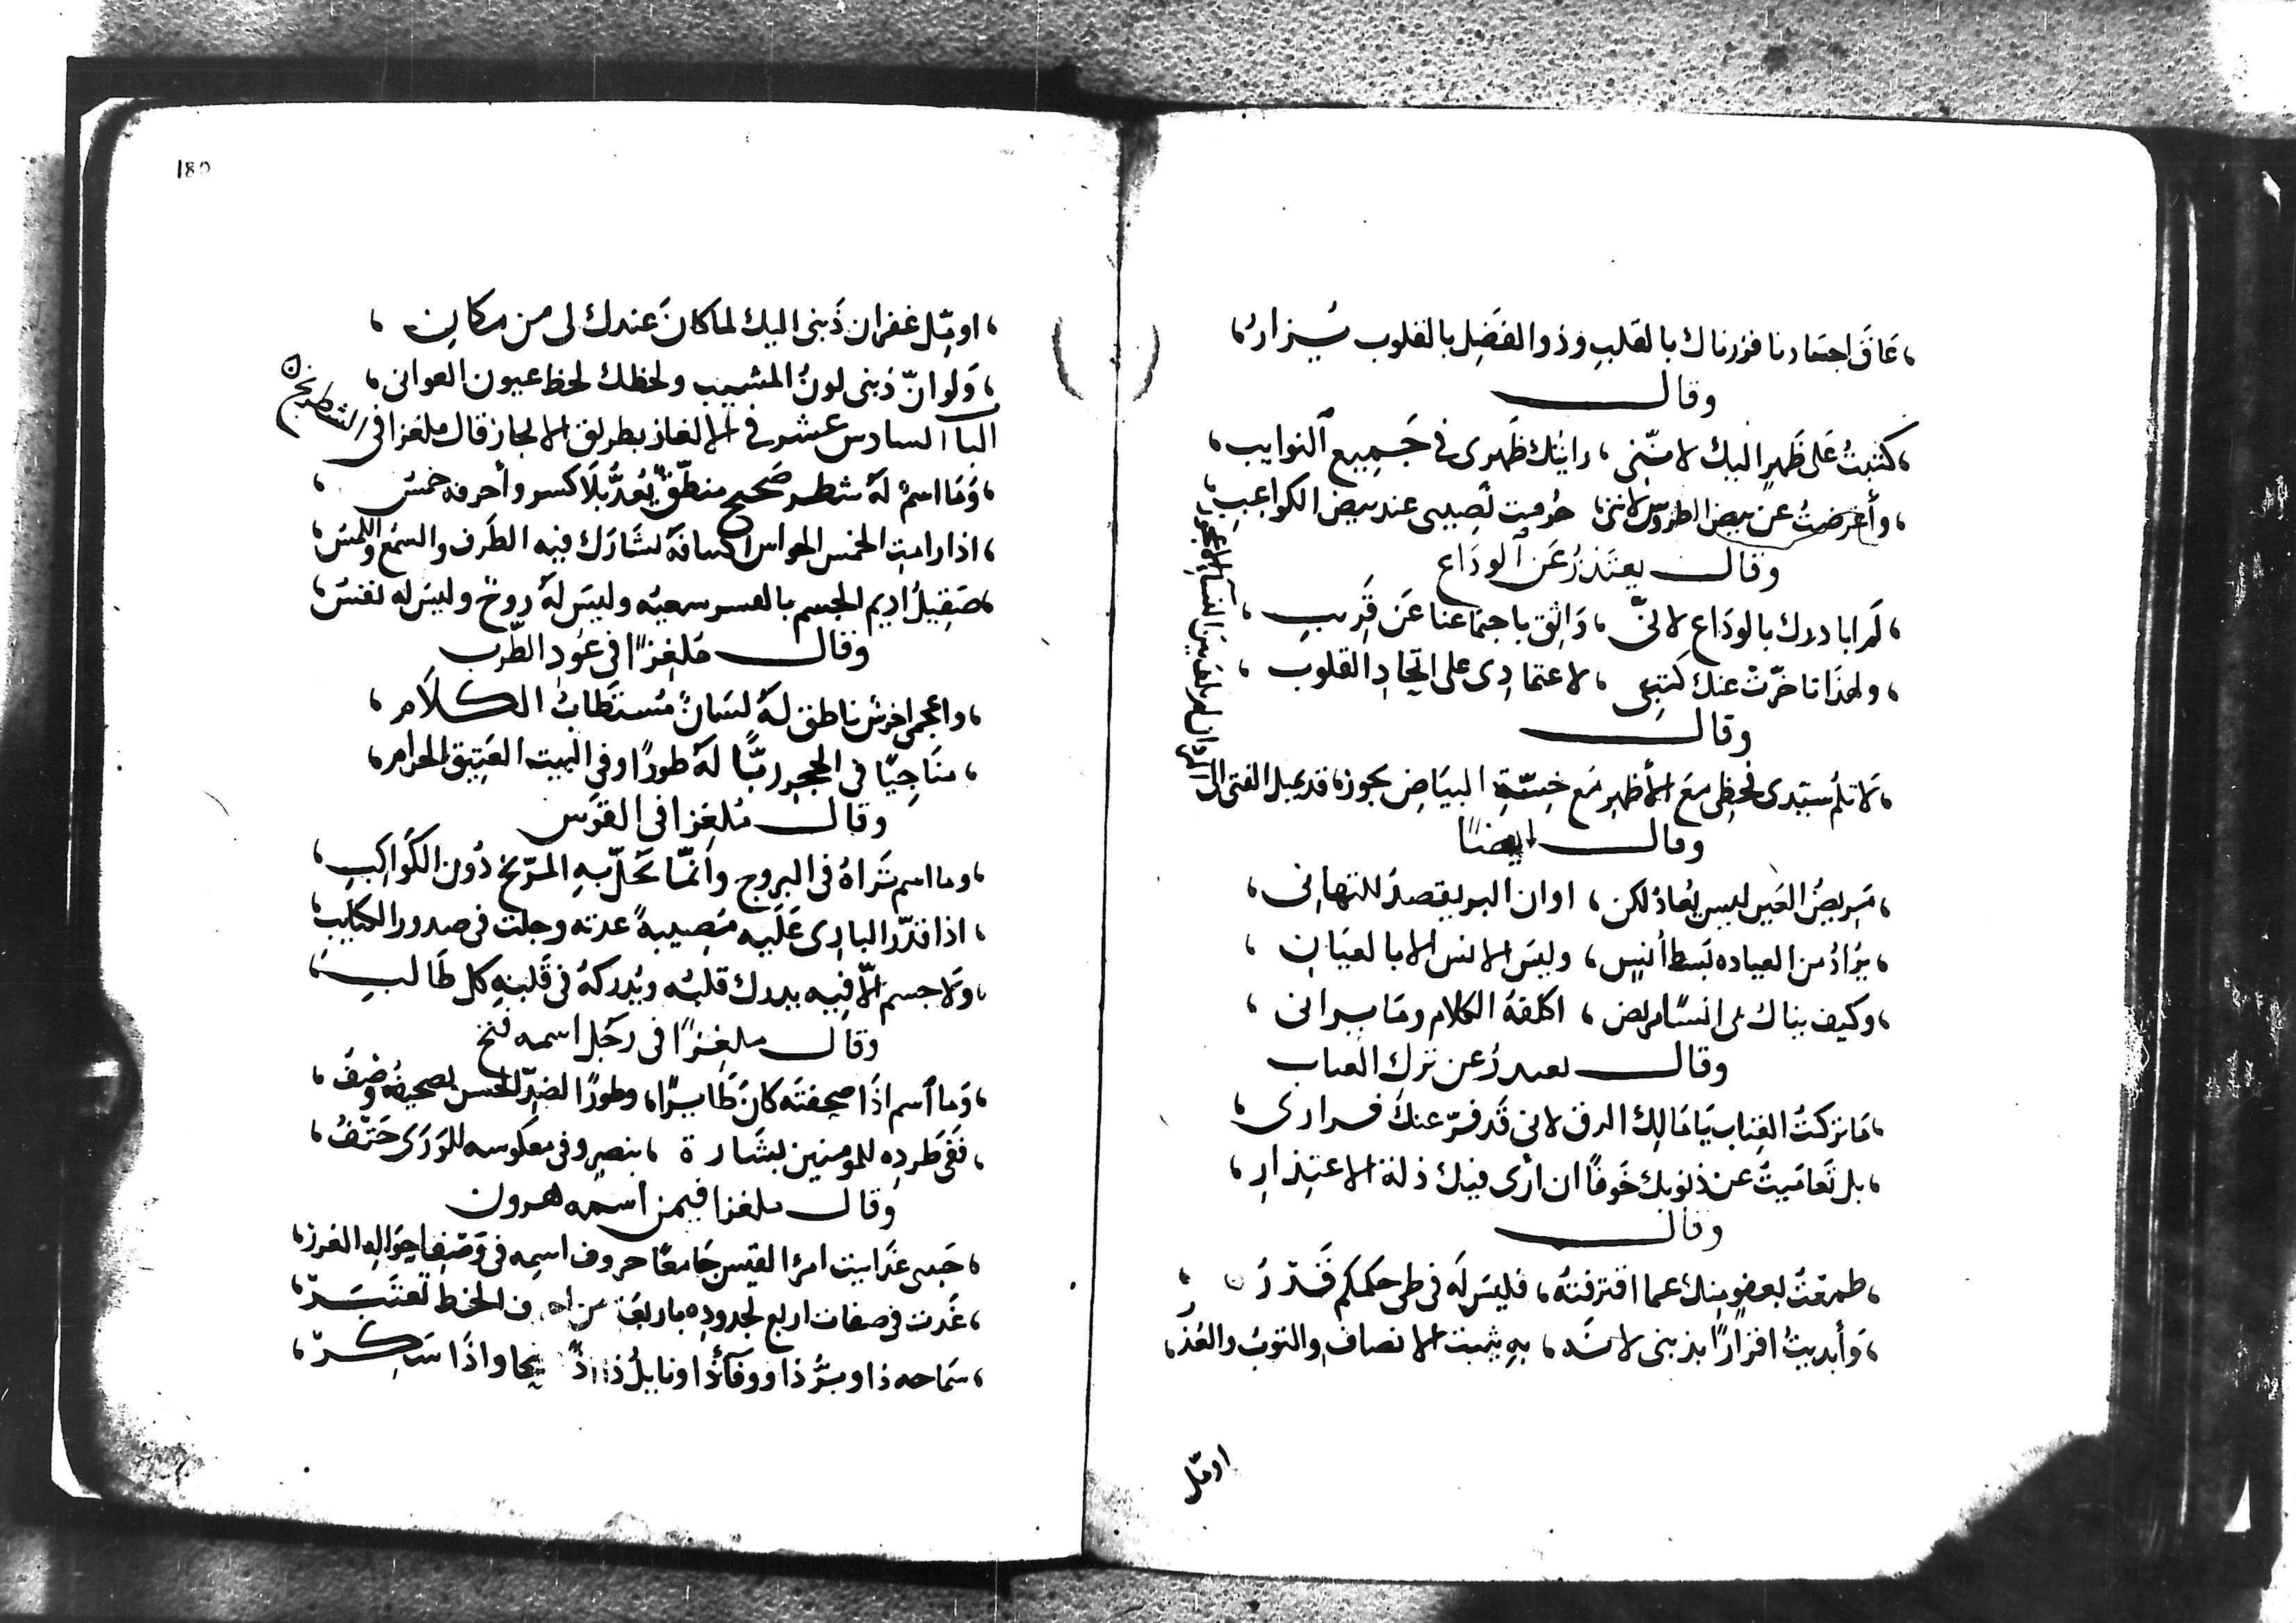 عَاقَ اجسَادنا فزرناك بالقلبِ وذو الفضَلِ بالقلوب يُزارُ
وقال
كتبتُ عَلى ظَهرٍ اليك لانّنى رايتك ظَهرى فى جَمِيع النوايب
وأعرضتُ عن بيض الطروس لاننى حُرمت نصِيبى عند بيض الكواعِبِ
وقال يعتَذرُ عَن الودَاع
لَم ابادرك بالودَاع لانىّ وَاثِق باجتماعنا عَن قَريبِ
ولهذَا تاخرّتْ عنك كتبِى لاعتمادِى على اتحادِ القلوب
وقال
لَا تلُم سيّدى لحظِى مَعَ الأظهرِ مَع خِسّةِ البيَاضِ يجوزُ قد يميل الفتى الى
وقال ايضًا
مَريضُ العَين ليس يُعَادُ لكن اوان البر يقصدُ للتهانِى
يرَادُ من العياده بَسط أنسٍ وليسَ الانس الا بالعيَانِ
وكيف انسًا مريض اكلفهُ الكلام ومَا يرانى
وقال يعتدرُ عن تركِ العتاب
مَا تركتُ العتِاب يَا مَالِك الرق لانى قَد قرّ عنكَ قرارى
بل تَعَاميتُ عن ذنوبِك خَوفًا ان ارَى فيك ذلة الاعتِذارِ
وقال
طمعْتُ بعفوٍ مِنك عما اقترفتهُ فليسَ لَه فى طى حكمكم قَدْرُ
وَأبديتُ اقرارًا بذنبى لانه بهِ يثبت الانصاف والتوبُ والعُذرُ
اومّل
180
اومّل غفران ذَنبى اليك لما كانَ عندك لى من مكانِ
وَلو انّ ذنبى لونُ المشيب ولحظك لحظ عيون الغوانى
الباب السادس عشر فى الالغاز بطريق الايجاز قال ملغزا فى الشطرنج
وَمَا اسمٌ لَهُ شطر صَحيح منطّقٌ يُعدُّ بلَا كسر وأحرفه خمسُ
اذا رامت الخمس الحواس تشَارَك فيه الطَرف والسمْع واللمسُ
صَقِيلُ اديم الجسم وليسَ لَهُ روحٌ وليسَ له نفسُ
وقال مُلغِزًا فى عُودِ الطّرب
واعجمى اخرس ناطق لَهُ لسَانٌ مُستطَابُ الكلَام
منَاجِيًا فى الحجرِ ربًّا لَهُ طورًا وفى البيت العَتِيق الحرامِ
وقال مُلغِزا فى القوَس
وما اسم تَراهُ فى البروج وانمَّا يحَلّ بهِ المرّيخ دُون الكَواكبِ
اذا قدّر البارِى عَلَيه مُصِيبةً عدته وحلت فى صدور الكتايبِ
ولَا جسم الّا فيه يدرك قلبُه ويُدركهُ فى قَلبِهِ كل طَالبِ
وقال ملغِزًا فى رجُل اسمه فتح
وَما اسم اذَا صحفتَه كانَ طَايرًا وطورًا لضِدّ الحسن تصحيفُه وَصْفُ
فَفى طَردِه للمومنين بشَارة بنصرٍ وفى معكوسه للوَرَى حَتْفُ
وقال ملغزا فيمن اسمه هرون
حَبيبى غدَا بيت امرئ القيس جَامعًا حروف اسمِه فى وَصْفِ احوَالهِ الغرز
غدَت فى صفات اربع الخط تعتَبَرْ
سَمَاحه ذا وبِرُّ ذا ووفَآءُ ذا ونايلُ ذا صحا واذَا سَكِرْ